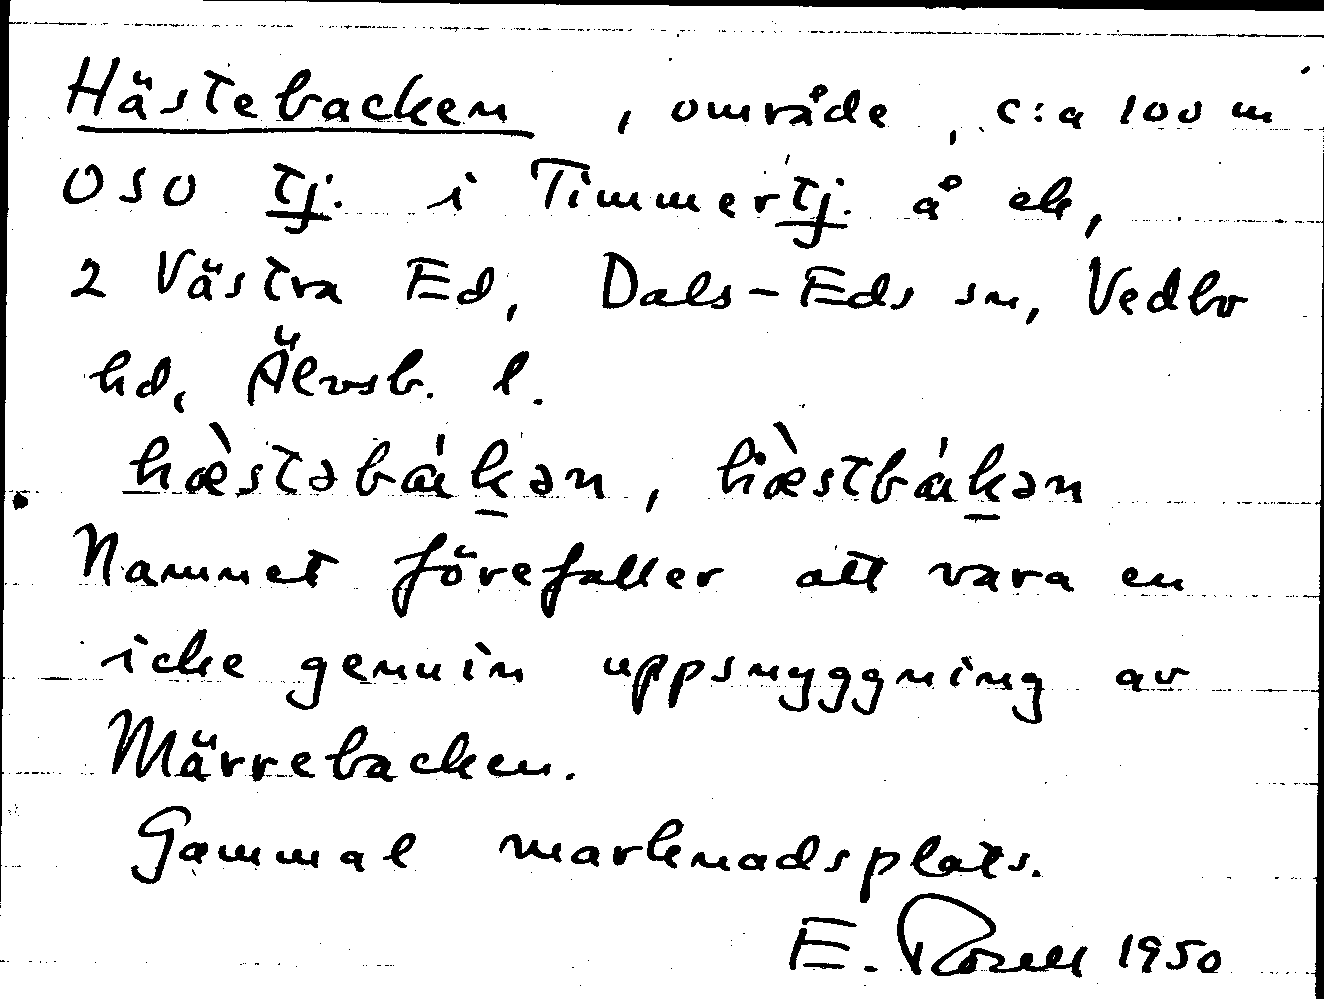 Hästebacken, område, c:a 100 m
OSO tj. i Timmertj. å ek,
2 Västra Ed, Dals-Eds sn, Vedbo
hd, Älvsb. l.
hæ̀stəbákən, hæ̀stbákən
Namnet förefaller att vara en
icke genuin uppsnyggning av
Märrebacken.
Gammal marknadsplats.
E. Rosell 1950